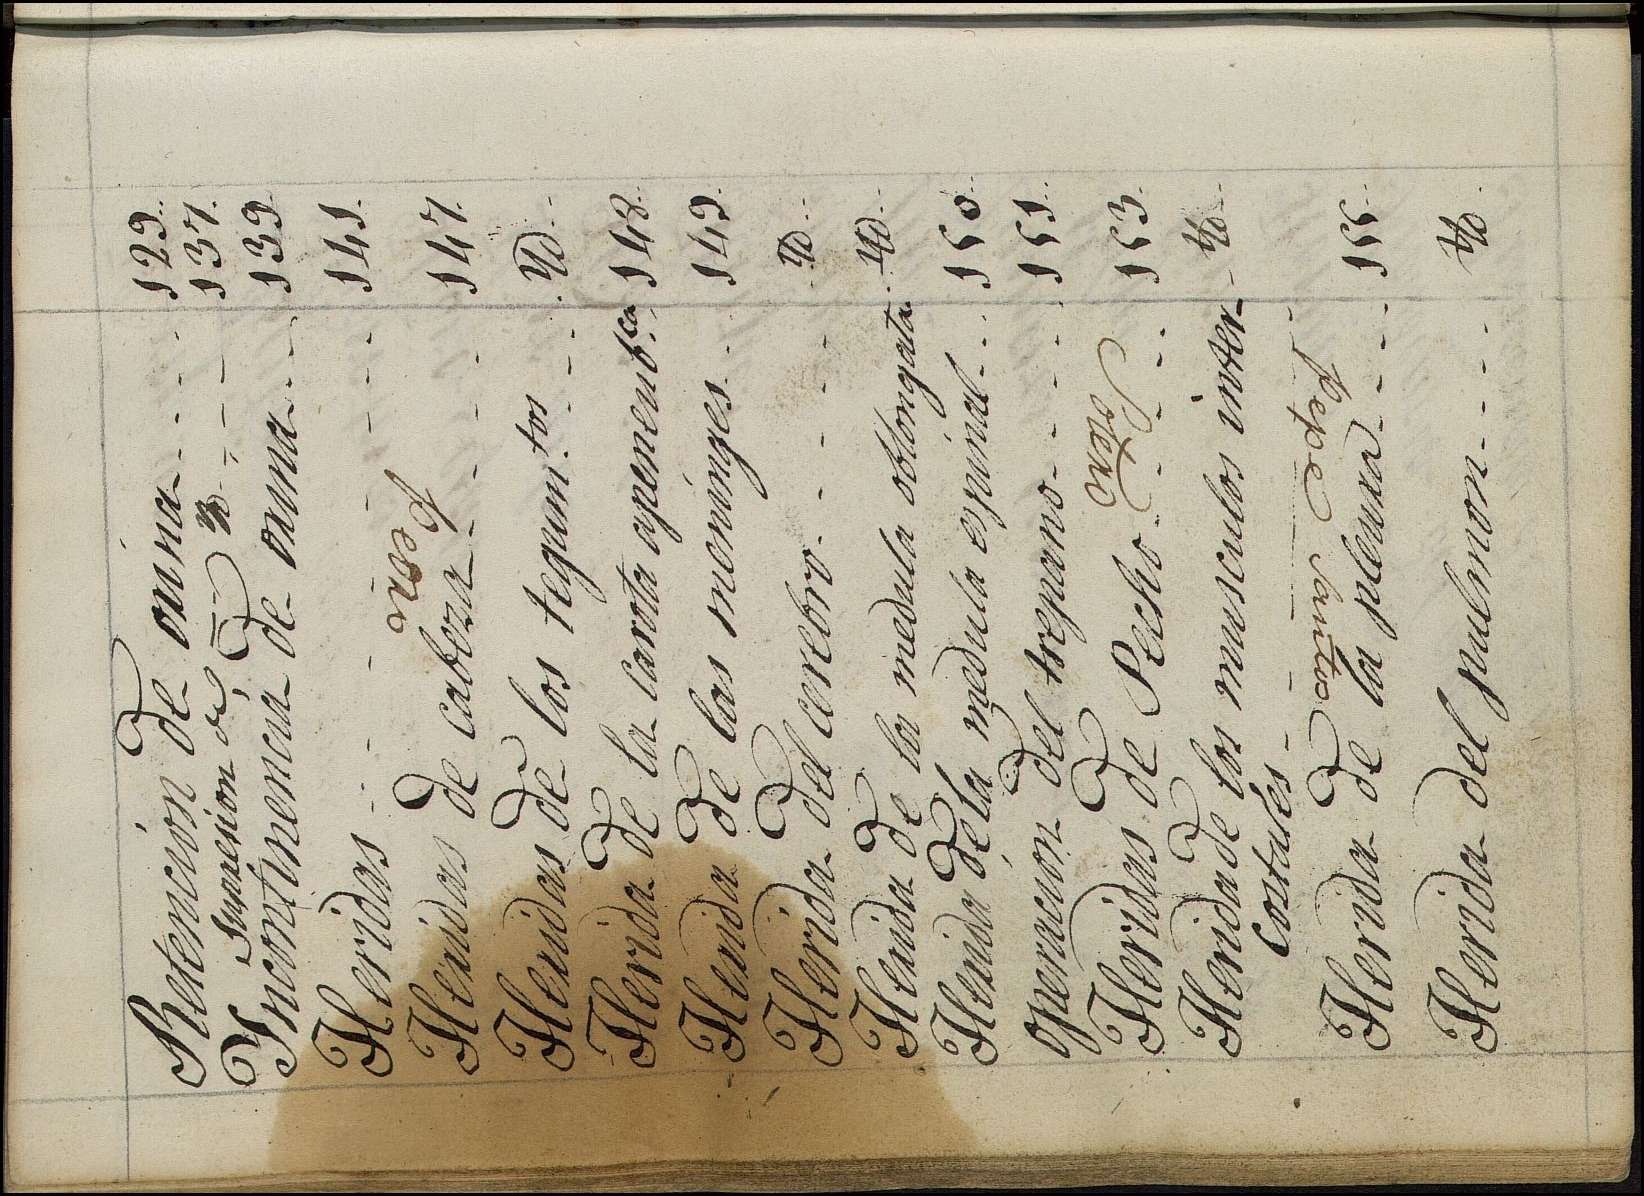 Retencion de orina - - - - 129.
Supresion de Yd. - - - 137.
Yncontinencia de orina - - - 139
Heridas - - - - - - - 141.
Heridas de cabeza - - - 147.
Heridas de los tegum.tos - - - Yd.
Herida de la carota aponeut.ca 148.
Herida de las meninges - - 149.
Herida del cerebro - - - - Yd.
Herida de la medula oblongata Yd.
Herida de la medula espinal - - 150.
operacion del trepano - - - - 151.
Heridas de Pecho - - - - 153.
Herida de los musculos inter- Yd.
costales - - - - - -
pepe
Herida de la pleura - - - 155.
Herida del pulmon - - - - Yd.